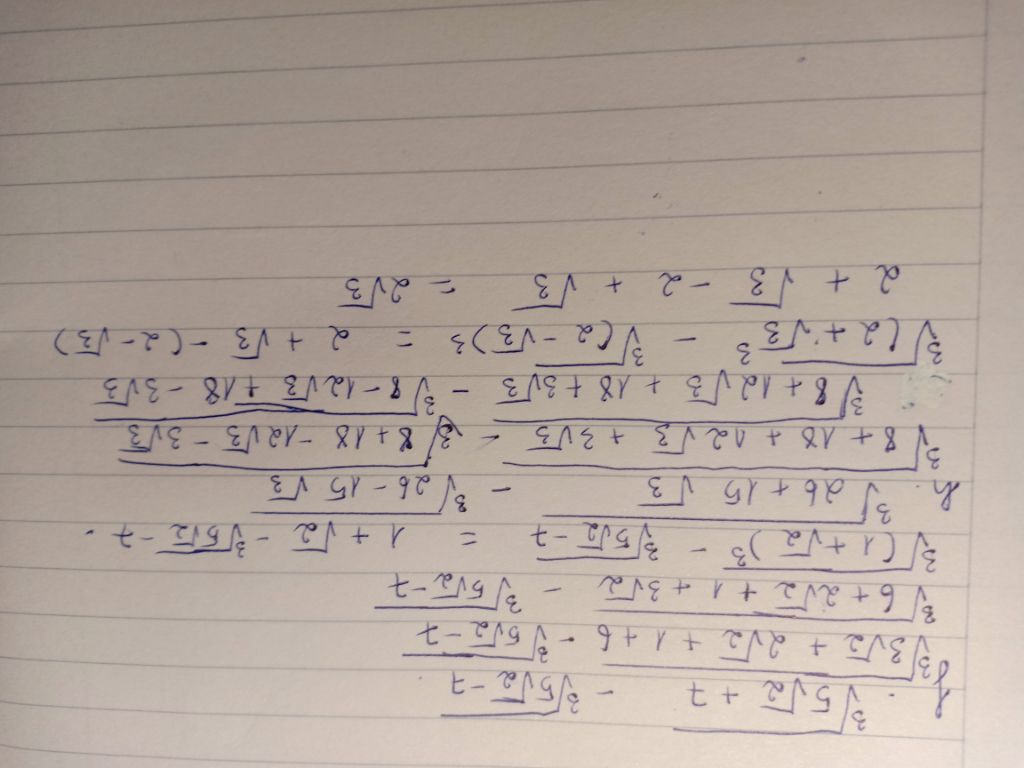 f. ∛(5√2 + 7) - ∛(5√2 - 7)
∛(3√2 + 2√2 + 1 + 6) - ∛(5√2 - 7)
∛(6 + 2√2 + 1 + 3√2) - ∛(5√2 - 7)
∛((1 + √2)³) - ∛(5√2 - 7) = 1 + √2 - ∛(5√2 - 7) .
h. ∛(26 + 15√3) - ∛(26 - 15√3)
∛(8 + 18 + 12√3 + 3√3) - ∛(8 + 18 - 12√3 - 3√3)
∛(8 + 12√3 + 18 + 3√3) - ∛(8 - 12√3 + 18 - 3√3)
∛((2 + √3)³) - ∛((2 - √3)³) = 2 + √3 - (2 - √3)
2 + √3 - 2 + √3 = 2√3